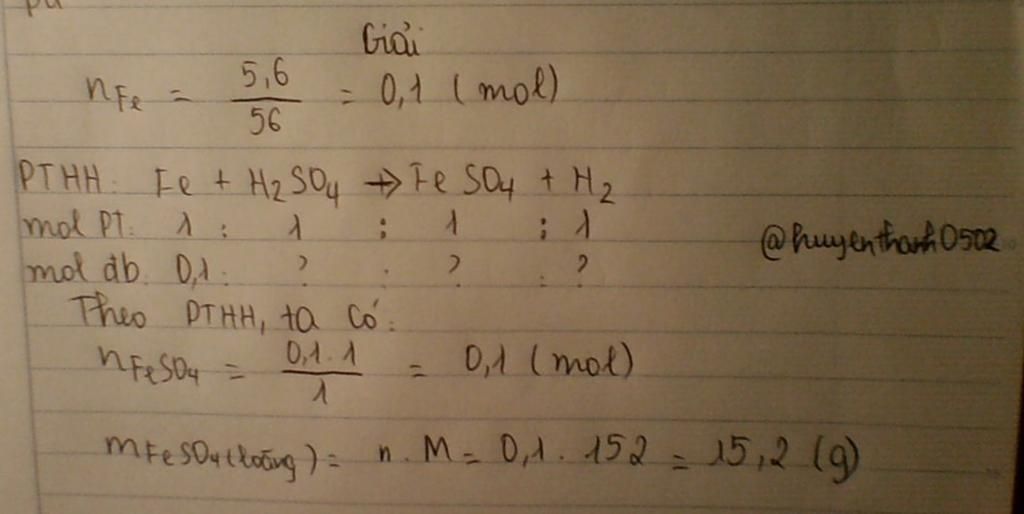 Giải
nFe = 5,6/56 = 0,1 (mol)
PTHH: Fe + H2SO4 → FeSO4 + H2
mol PT: 1 : 1 : 1 : 1
@huyenthanh0502
mol đb 0,1 : ? : ? : ?
Theo PTHH, ta có:
nFeSO4 = 0,1.1/1 = 0,1 (mol)
mFeSO4 (loãng) = n.M = 0,1.152 = 15,2 (g)